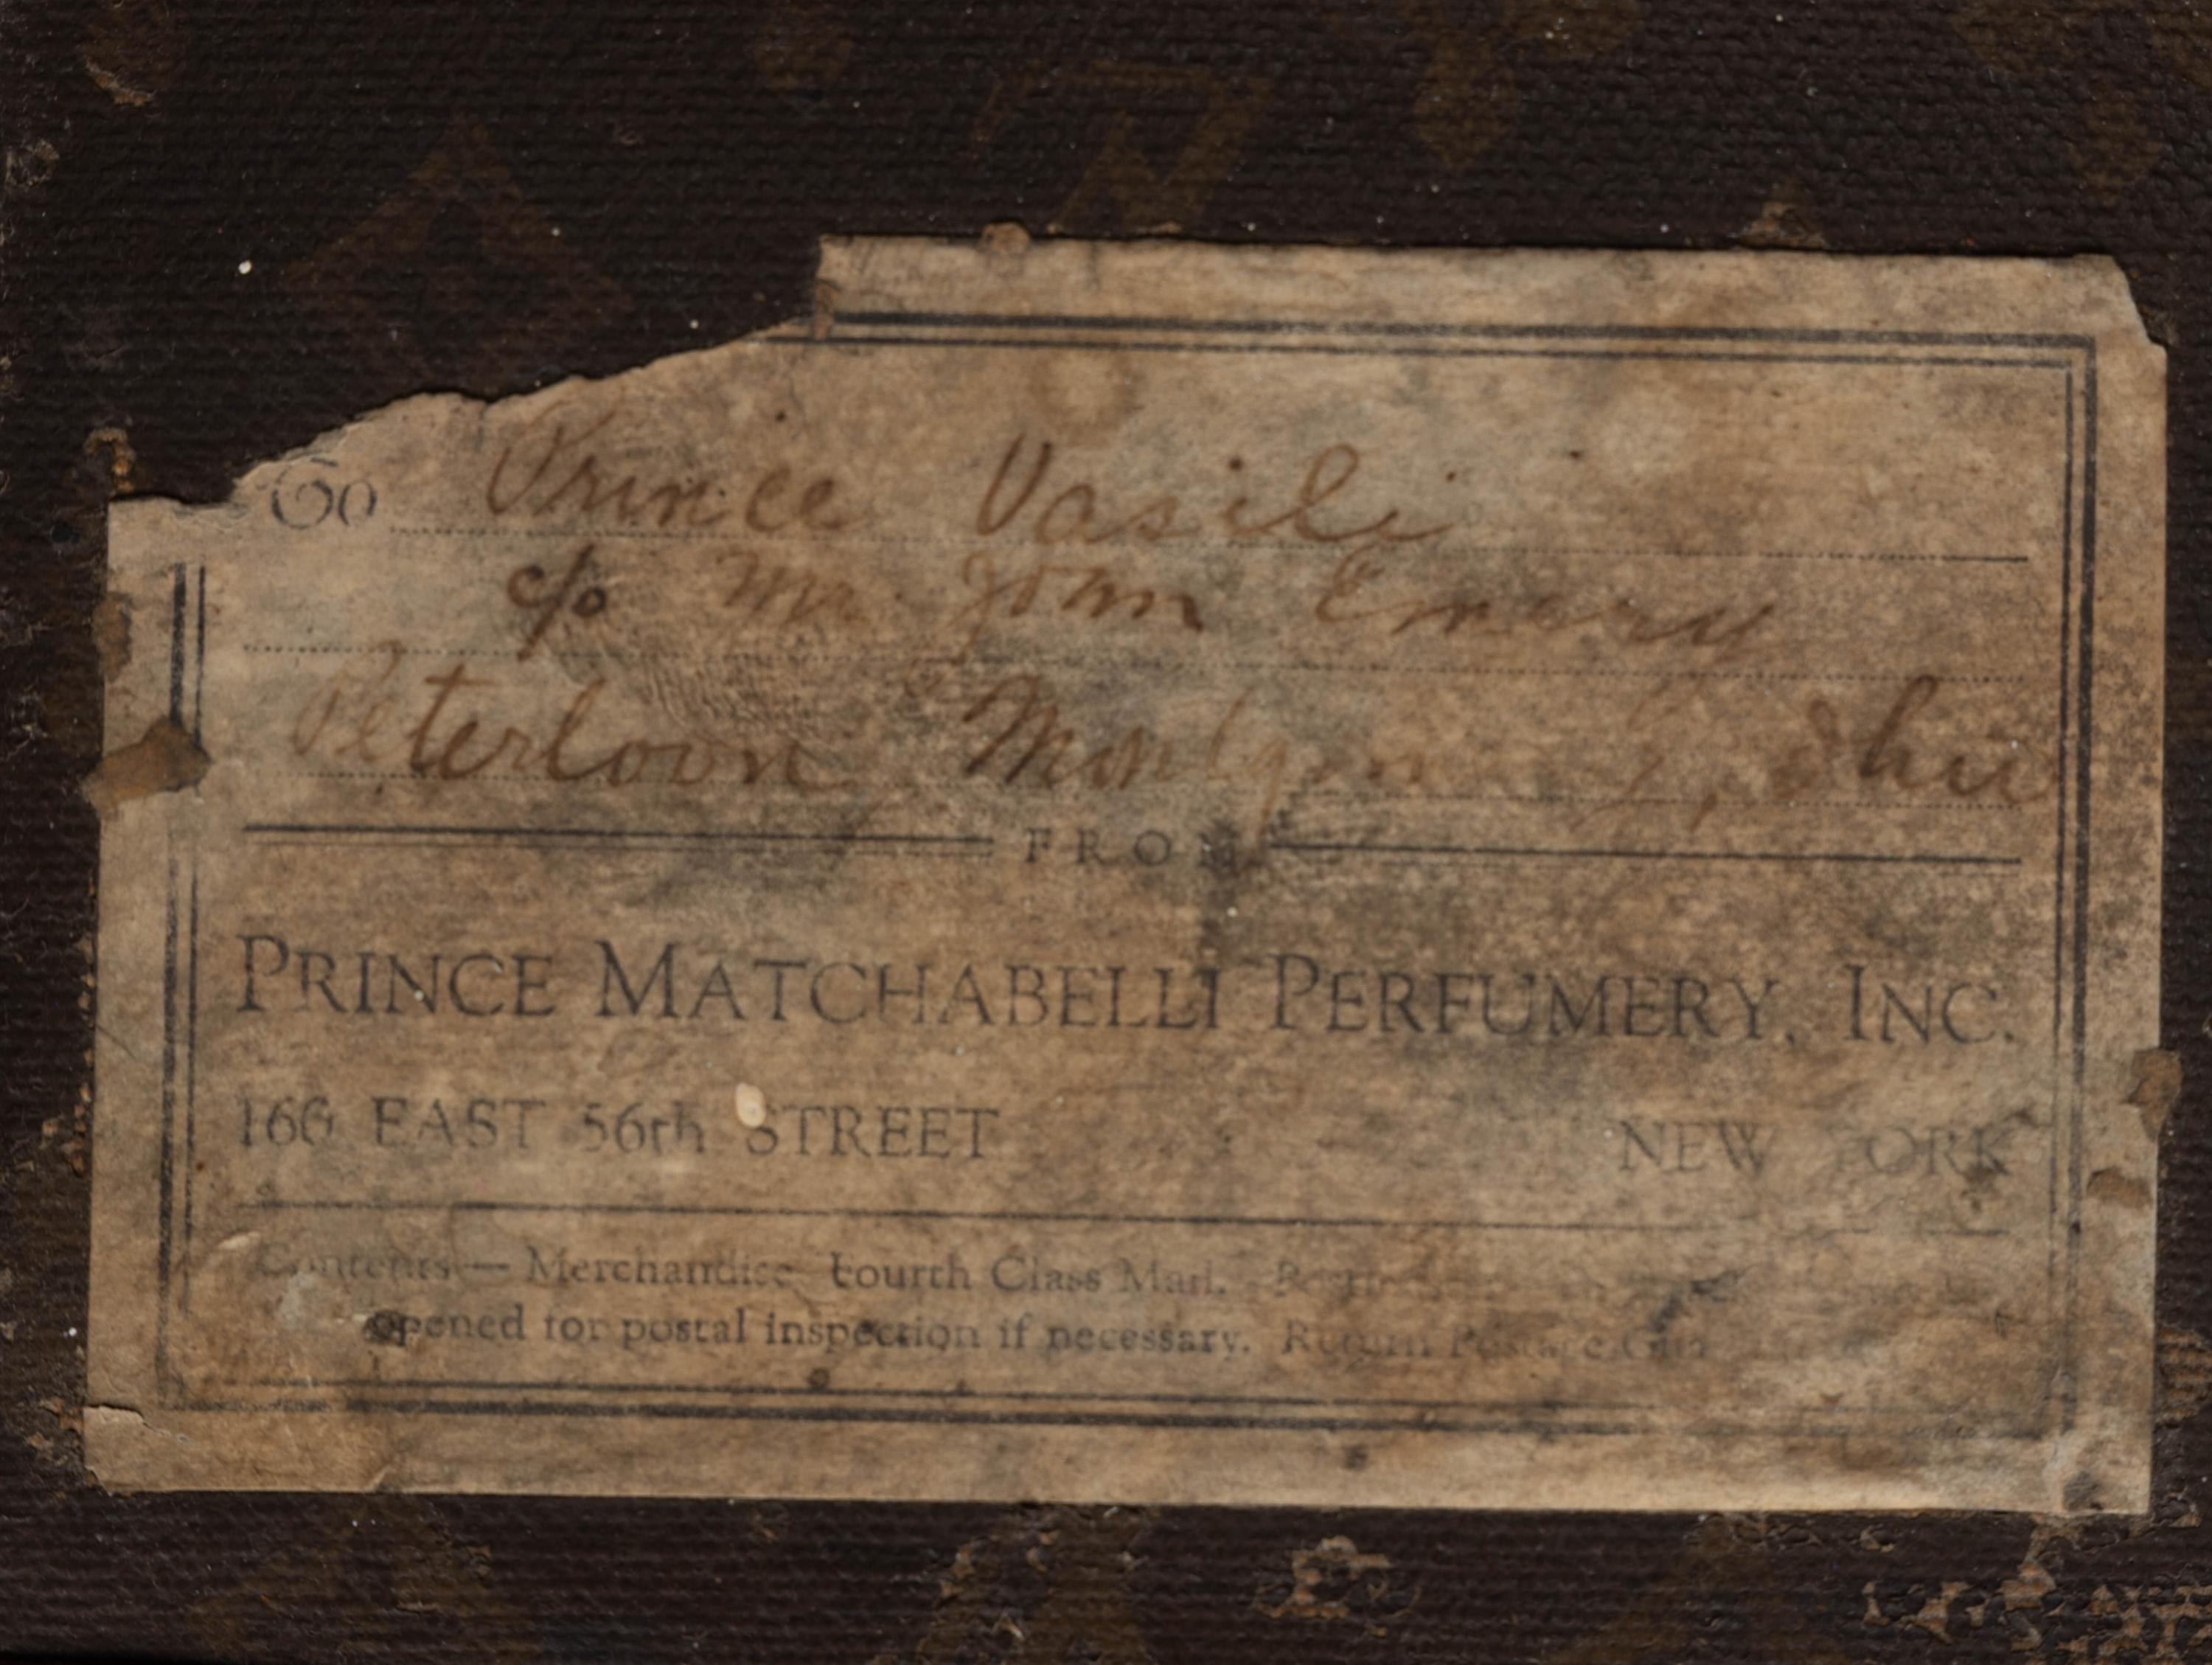 To Prince Vasili
c/o Mr. John Emery
Peterloon Ohio
FROM
PRINCE MATCHABELLI PERFUMERY, INC.
160 EAST 56th STREET NEW YORK
Contents — Merchandise Fourth Class Mail.
opened for postal inspection if necessary. Return Postage